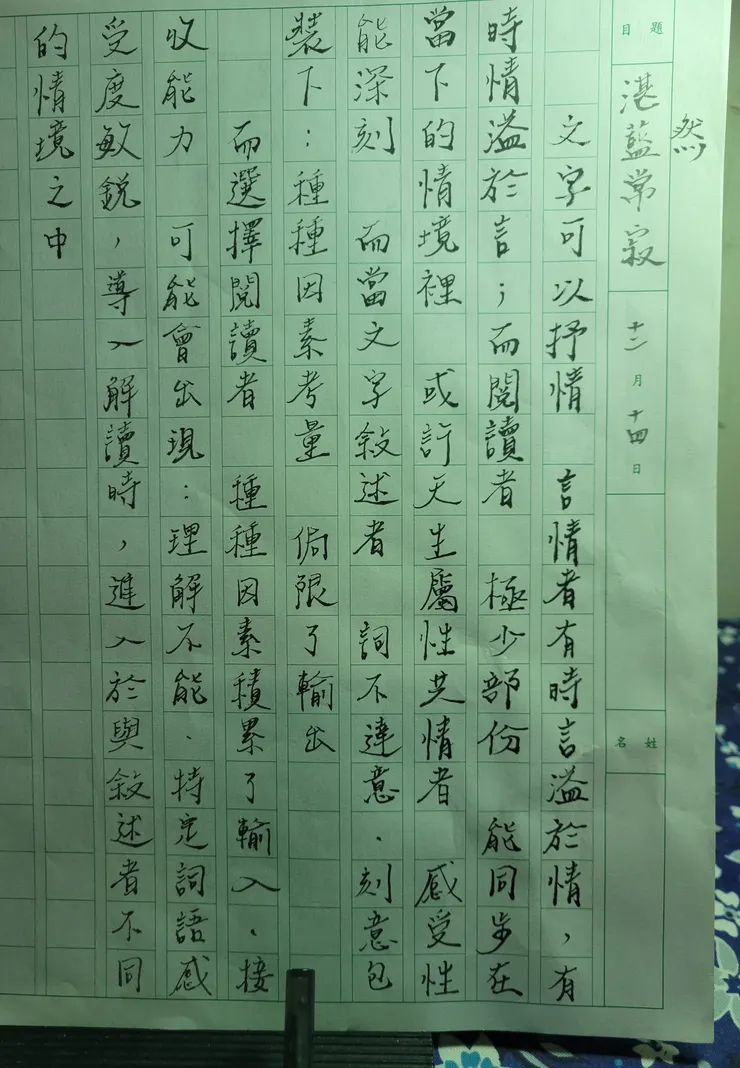 然
題目 湛藍常寂 十二月十四日 姓名
文字可以抒情 言情者有時言溢於情，有
時情溢於言；而閱讀者 極少部份 能同步在
當下的情境裡 或許天生屬性共情者 感受性
能深刻 而當文字敘述者 詞不達意、刻意包
裝下：種種因素考量 侷限了輸出
而選擇閱讀者 種種因素積累了輸入、接
收能力 可能會出現：理解不能、特定詞語感
受度敏銳，導入解讀時，進入於與敘述者不同
的情境之中